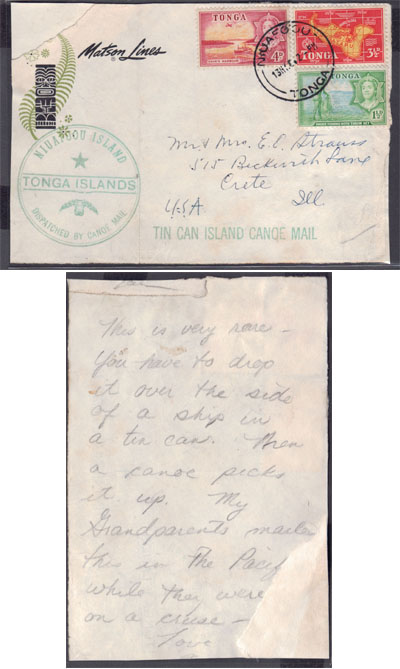 Matson Lines
TONGA
4D
TONGA
3½D
NIUAFOOU
TONGA
TONGA
1½D
NIUAFOOU ISLAND
TONGA ISLANDS
DISPATCHED BY CANOE MAIL
Mr & Mrs. E. C. Strauss
515 Beckwith Lane
Crete
U.S.A Ill.
TIN CAN ISLAND CANOE MAIL
This is very rare –
You have to drop
it over the side
of a ship in
a tin can. Then
a canoe picks
it up. My
Grandparents
this in The Pacif
while they were
on a cruse –
Love